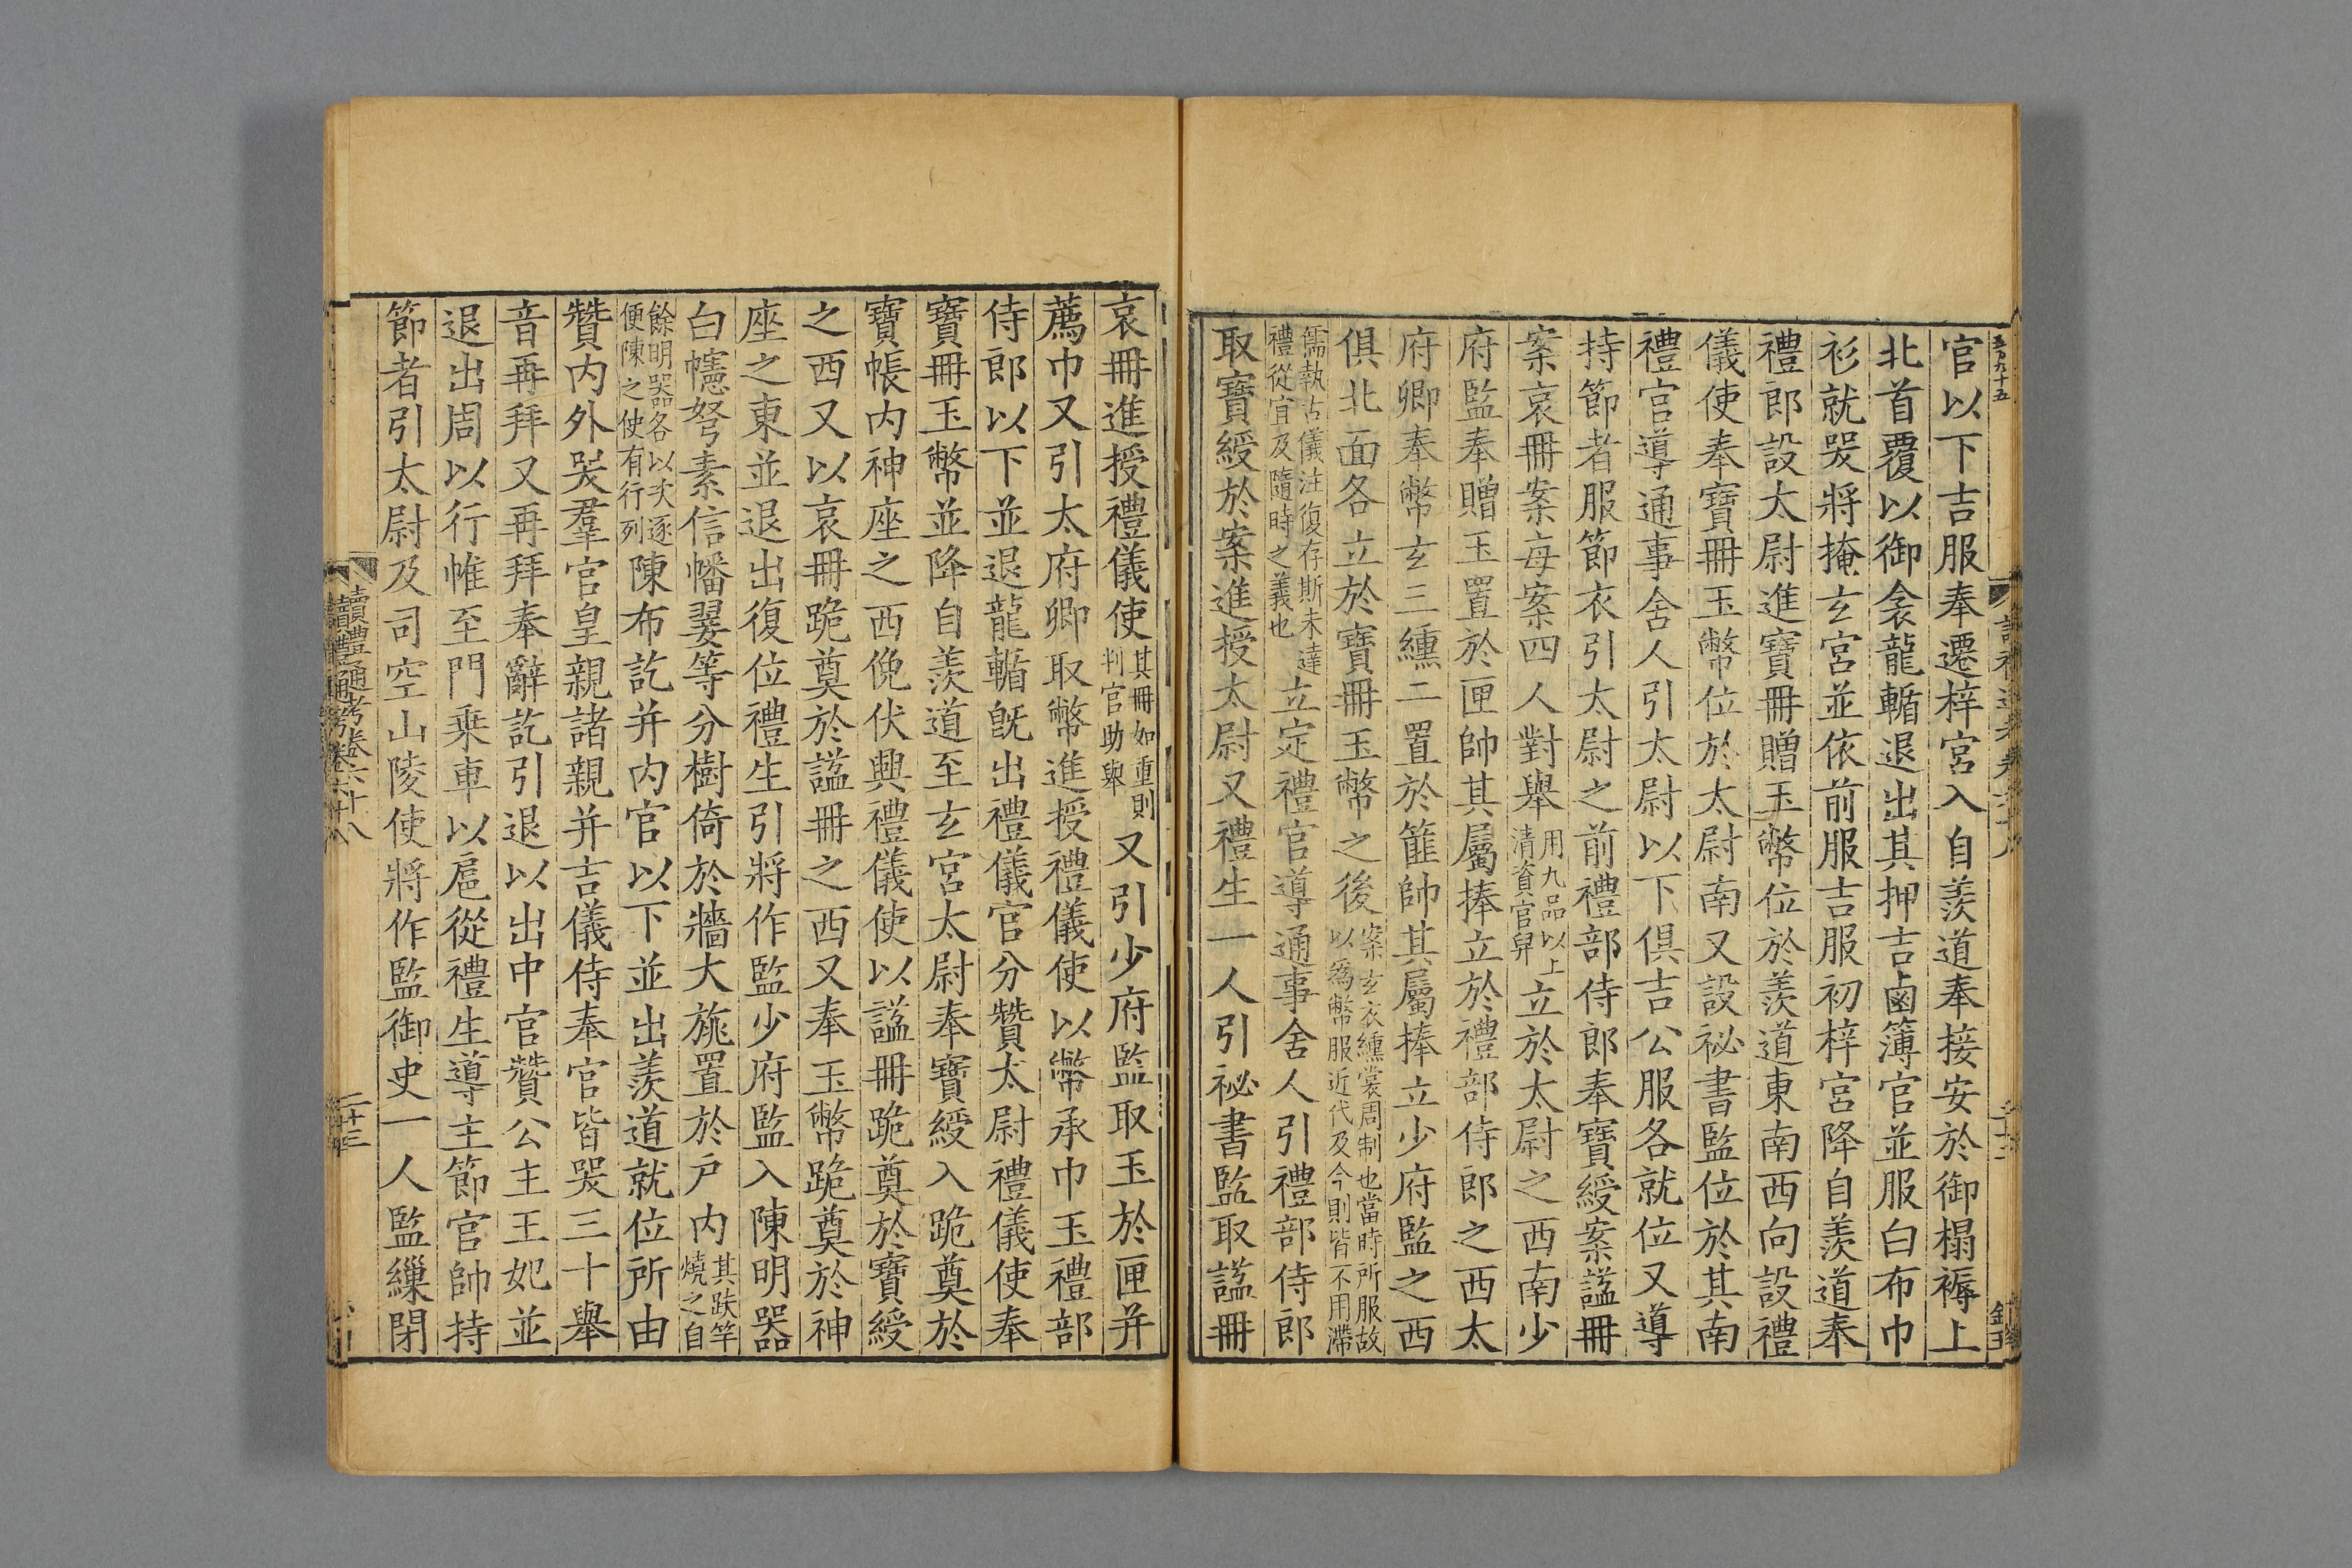 官以下吉服奉遷梓宮入自羨道奉接安於御榻褥上
北首覆以御衾龍輴退出其押吉鹵簿官並服白布巾
衫就哭將掩玄宮並依前服吉服初梓宮降自羨道奉
禮郎設太尉進寶冊贈玉幣位於羨道東南西向設禮
儀使奉寶冊玉幣位於太尉南又設祕書監位於其南
禮官導通事舍人引太尉以下俱吉公服各就位又導
持節者服節衣引太尉之前禮部侍郎奉寶綬案謚冊
案哀冊案每案四人對舉用九品以上清資官舁立於太尉之西南少
府監奉贈玉置於匣帥其屬捧立於禮部侍郎之西太
府卿奉幣玄三纁二置於篚帥其屬捧立少府監之西
俱北面各立於寶冊玉幣之後案玄衣纁裳周制也當時所服故以為幣服近代及今則皆不用滯
儒執古儀注復存斯未達禮從宜及隨時之義也立定禮官導通事舍人引禮部侍郎
取寶綬於案進授太尉又禮生一人引祕書監取謚冊
哀冊進授禮儀使其冊如重則判官助舉又引少府監取玉於匣并
薦巾又引太府卿取幣進授禮儀使以幣承巾玉禮部
侍郎以下並退龍輴旣出禮儀官分贊太尉禮儀使奉
寶冊玉幣並降自羨道至玄宮太尉奉寶綬入跪奠於
寶帳內神座之西俛伏興禮儀使以謚冊跪奠於寶綬
之西又以哀冊跪奠於謚冊之西又奉玉幣跪奠於神
座之東並退出復位禮生引將作監少府監入陳明器
白幰弩素信幡翣等分樹倚於牆大旐置於戶內其趺竿燒之自
餘明器各以次逐便陳之使有行列陳布訖并內官以下並出羨道就位所由
贊內外哭羣官皇親諸親并吉儀侍奉官皆哭三十舉
音再拜又再拜奉辭訖引退以出中官贊公主王妃並
退出周以行帷至門乘車以扈從禮生導主節官帥持
節者引太尉及司空山陵使將作監御史一人監繅閉
讀禮通考卷六十八
二十三